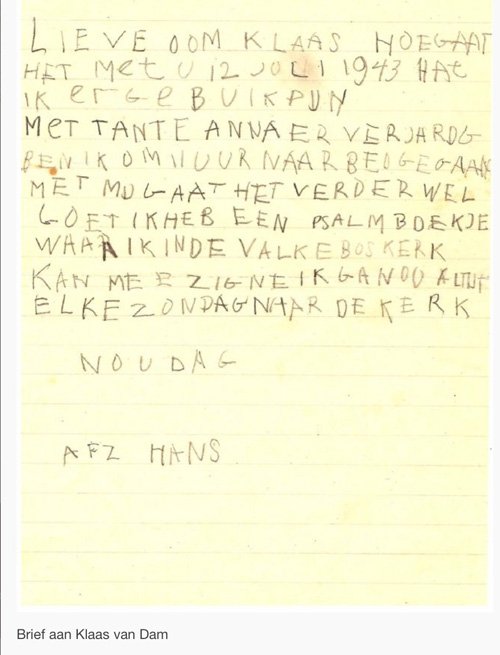 LIEVE OOM KLAAS HOEGAAT
HET Met U 12 JULI 1943 HAt
IK erGe BUIKPIJN
MeT TANTE ANNA ER VERJARDG
BEN IK OM 11 UUR NAAR BED GEGAAN
MET MIJ GAAT HET VERDER WEL
GOET IK HEB EEN PSALMBOEKJE
WAAR IK IN DE VALKEBOSKERK
KAN MEEZIGNE IK GA NOU ALTIJT
ELKE ZONDAG NAAR DE KERK
NOU DAG
AFZ HANS
Brief aan Klaas van Dam